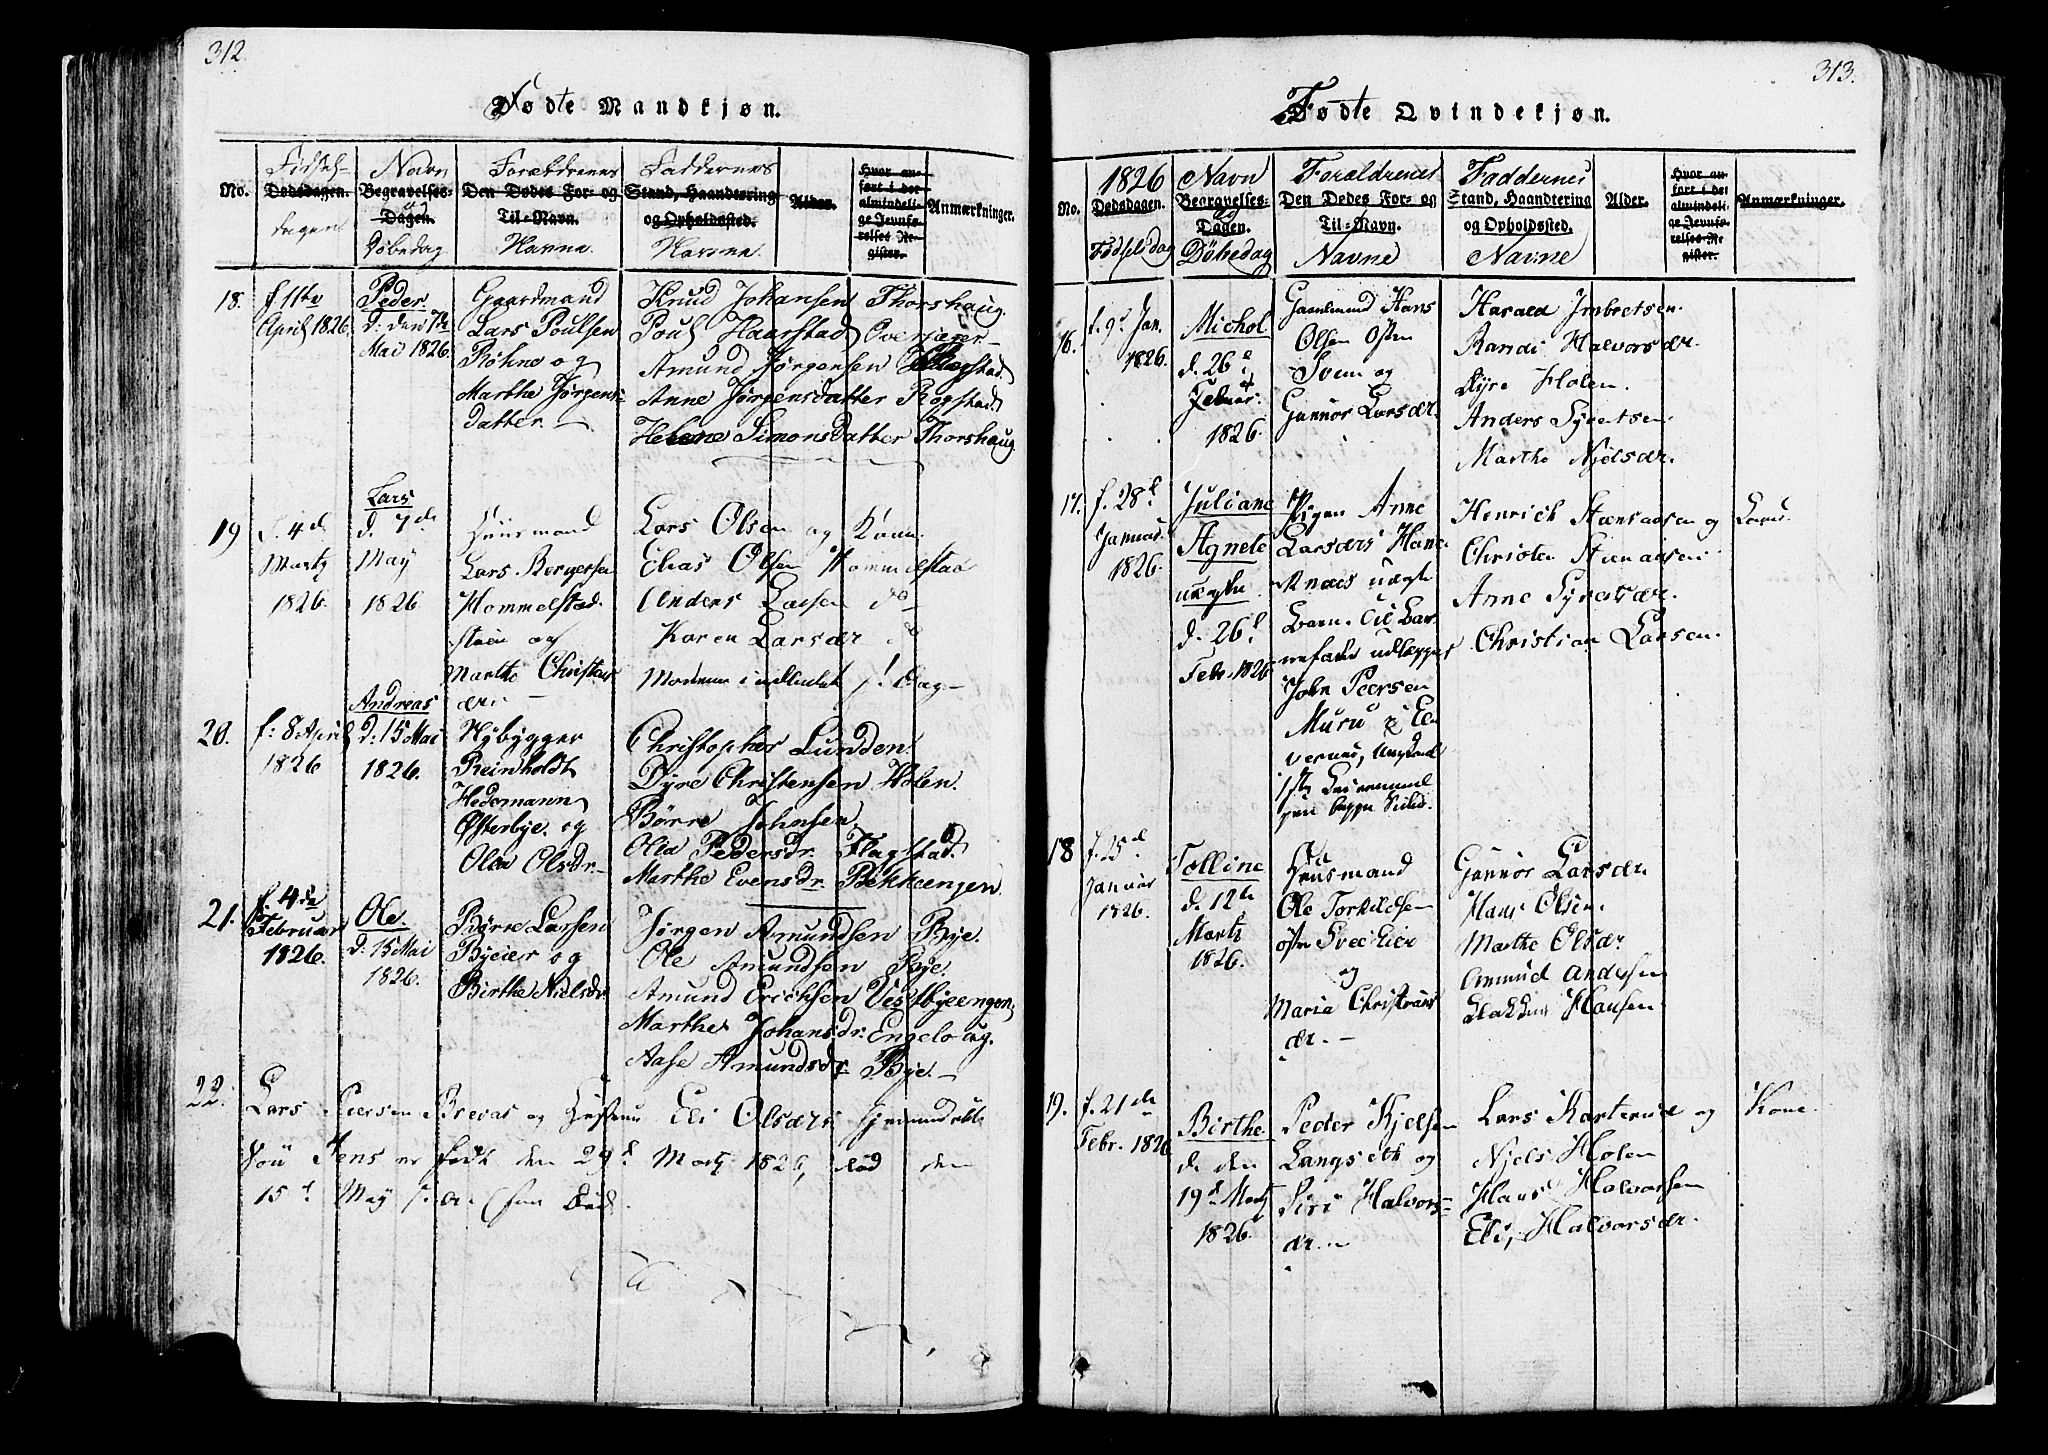 312.
Fødte Mandkjøn.
No.
Fødsels-
Dødsdagen.
dagen
Navn
Begravelses-
og
Dagen.
Døbedag
Forældrenes
Den Dødes For- og
Til-Navn.
Navne
Faddernes
Stand, Haandtering
og Opholdssted.
Navne
Alder.
Hvor an-
ført i det
almindeli-
ge Jevnfø-
relses Re-
gister.
Anmærkninger.
18.
f. 11te
April 1826.
Peder.
d: den 7de
Mai 1826.
Gaardmand
Lars Poulsen
Böhne og
Marthe Jørgens-
datter.
Knud Johansen Thorshaug.
Poul Haarstad Overseier
Amund Jørgensen
Anne Jørgensdatter Rogstad.
Helene Simonsdatter Thorshaug.
19
f. 4de
Martz
1826.
Lars
d. 7de
May
1826
Huusmand
Lars Bergersen
Hommelstad-
og
Marthe Christens
dr.
Lars Olsen og Kone.
Elias Olsen Hommelstad
Anders Larsen do
Karen Larsdr do
20.
f: 8 April
1826
Andreas
d: 15 Mai
1826.
Nybygger
Reinholdt
Hedemann
Østerbye. og
Olea Olsdr.
Christopher Lunden.
Dyre Christensen Holen.
Børre Johnsen.
Olia Pedersdr. Flagstad.
Marthe Evensdr. Bekkeengen.
21.
f. 4de
Februar
1826.
Ole.
d. 15 Mai
1826.
Børre Larsen
Byeier og
Birthe Nielsdr
Jørgen Amundsen Bye.
Ole Amundsen Bye.
Amund Erichsen Vestbyeengen,
Marthe Johansdr. Engelaug.
Aase Amundsdr Bye.
22.
Lars Peersen og Eli Olsdrs
Jens er født den 29d Martz 1826, død den
15d May s. a.
313.
Fødte Qvindekjøn.
No.
1826
Dødsdagen.
Fødselsdag
Navn
Begravelses-
og
Dagen.
Döbedag
Forældrenes
Den Dødes For- og
Til-Navn.
Navne
Faddernes
Stand, Haandtering
og Opholdssted.
Navne
Alder.
Hvor an-
ført i det
almindeli-
ge Jevnfø-
relses Re-
gister.
Anmærkninger.
16.
f. 9d Jan.
1826.
Michol
d. 26d
Februar.
1826.
Gaardmand Hans
Olsen Østen
Sveen og
Gunnor Larsdr.
Harald Imbretsen.
Randi Halvorsdr.
Dyre Holen.
Anders Syvertsen
Marthe Njelsdr.
17.
f. 28d
Januar.
1826.
Juliane
Agnete
uægte
d. 26d
Febr. 1826
Pigen Anne
Larsdrs
uægte
Barn. til Bar-
nefader udlægges
John Peersen
Henrich Steensadsen og
Christen
Anne Syversdr.
Christian Larsen.
18
f. 25d
Januar
1826.
Tolline
d. 12te
Martz
1826.
Huusmand
Ole Torkildsen
og
Maria Christians
dr.
Gunnor Larsdr
Hans Olsen.
Marthe Olsdr
Ammund Andersen
Hansen
19.
f. 21de
Febr. 1826
Birthe
d. den
19d Martz
1826.
Peder Kjelsen
Langseth og
Siri Halvors-
dr.
Lars Karterud og Kone.
Njels Holen
Hans Halvorsen
Eli, Halvorsdr.